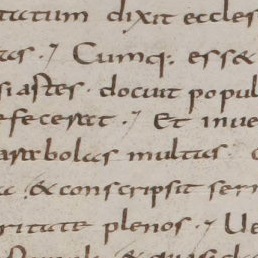 tatum dixit eccles
tas ·⁊ Cumq; ess&
siastes · docuit popul
fecerat ·⁊ Et inve
arabolas multas ·
& conscripsit ser
ritate plenos ·⁊ Ve
& quasi